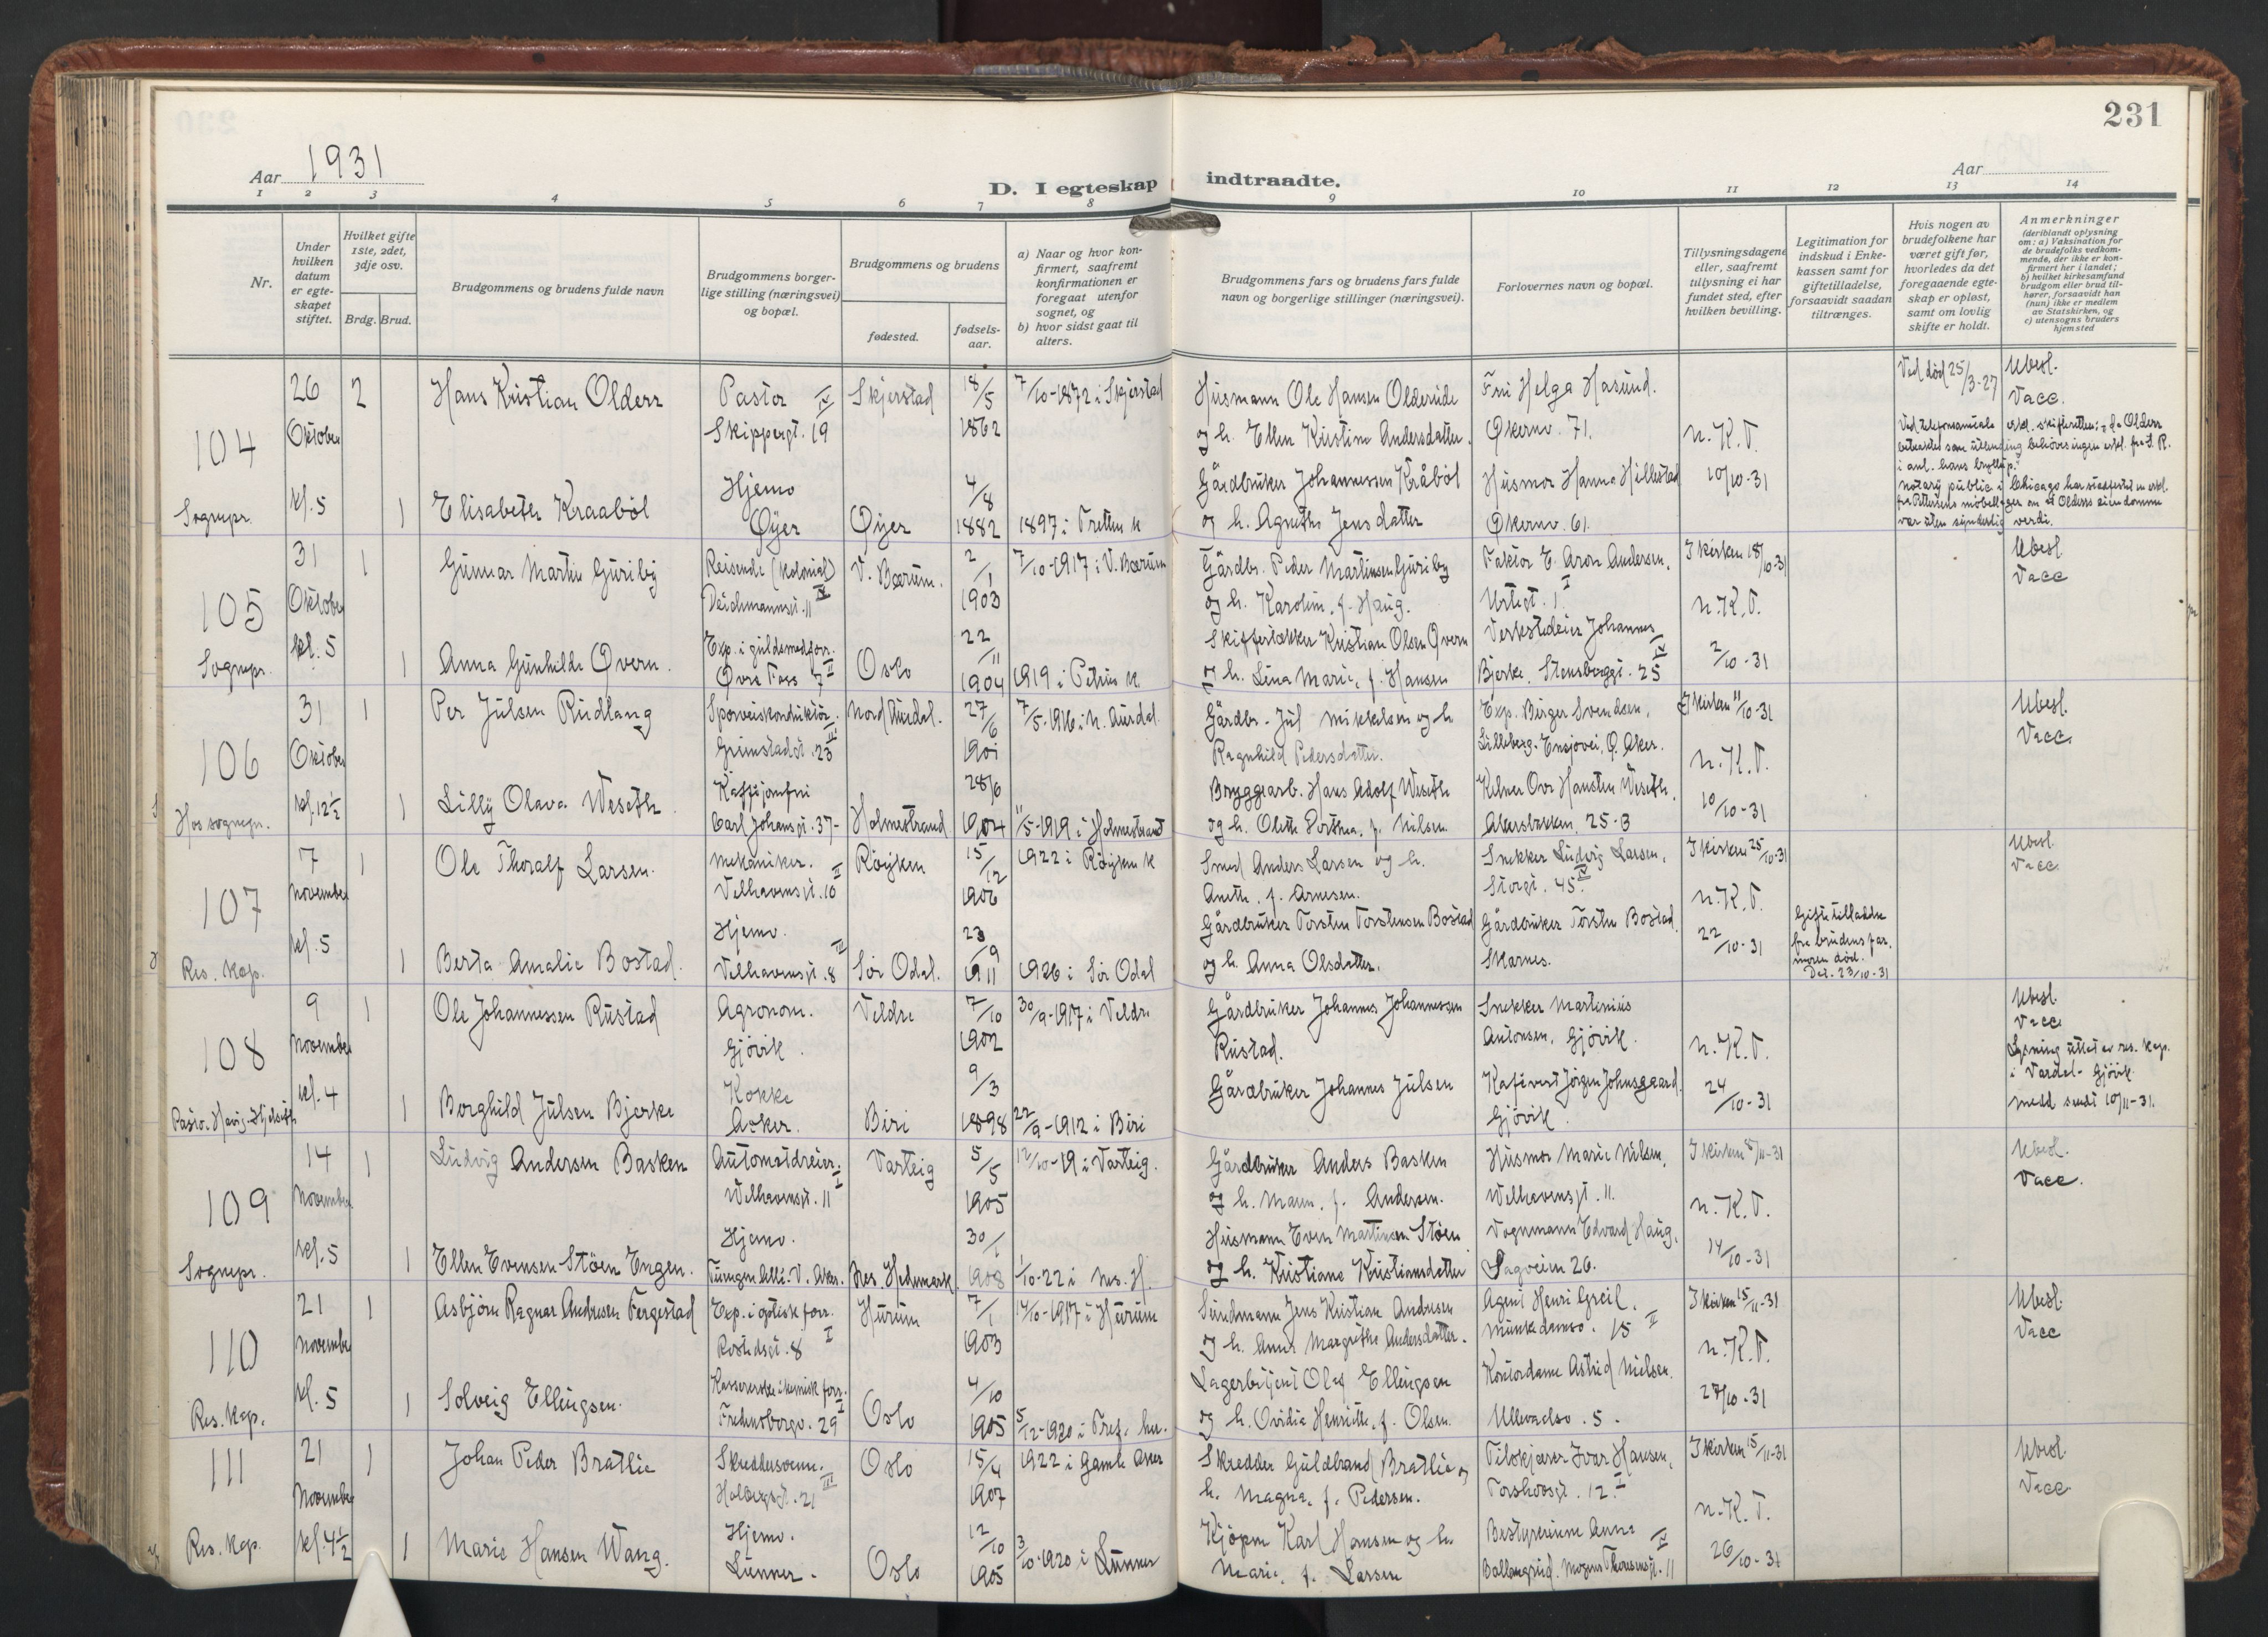 231
Aar 1931
D. I egteskap indtraadte.
Aar
1 2 3 4 5 6 7 8 9 10 11 12 13 14
Nr.
Under hvilken datum er egteskapet stiftet.
Hvilket gifte 1ste, 2det, 3dje osv.
Brdg. Brud.
Brudgommens og brudens fulde navn
Brudgommens borgerlige stilling (næringsvei) og bopæl.
Brudgommens og brudens
fødested.
fødselsaar.
a) Naar og hvor konfirmert, saafremt konfirmationen er foregaat utenfor sognet, og
b) hvor sidst gaat til alters.
Brudgommens fars og brudens fars fulde navn og borgerlige stillinger (næringsvei).
Forlovernes navn og bopæl.
Tillysningsdagene eller, saafremt tillysning ei har fundet sted, efter hvilken bevilling.
Legitimation for indskud i Enkekassen samt for giftetilladelse, forsaavidt saadan tiltrænges.
Hvis nogen av brudefolkene har været gift før, hvorledes da det foregaaende egteskap er opløst, samt om lovlig skifte er holdt.
Anmerkninger (deriblandt oplysning om: a) Vaksination for de brudefolks vedkommende, der ikke er konfirmert her i landet; b) hvilket kirkesamfund brudgom eller brud tilhører, forsaavidt han (hun) ikke er medlem av Statskirken, og c) utensogns bruders hjemsted
104 26 Oktober kl. 5 Sognepr.
2 Hans Kristian Olderr Pastor Skippergt. 19 IV Skjerstad 18/5 1862 7/10-1872 i Skjerstad
Husmann Ole Hansen Oldereide og h. Ellen Kristine Andersdatter. Fru Helga Hasund. Økernv. 71. n.K.T. 10/10-31
Ved død 25/3-27 Ubesl. Vacc.
1 Elisabeth Kraaböl Hjemv. Øyer Øyer 4/8 1882 1897 i Tretten k
Gårdbruker Johannessen Kråböl og h. Agnethe Jensdatter Husmor Hanna Hillestad Økernv. 61.
105 31 Oktober kl. 5 Sognepr.
1 Gunnar Martin Guriby Reisende (kolonial) Deichmannsgt. 11 IV V. Bærum. 2/1 1903 7/10-1917 i V. Bærum
Gårdbr. Peder Martinsen Guriby og h. Karoline f. Haug. Faktor E. Aron Andersen, Urtegt. 1 I I kirken 18/10-31 n.K.T. 2/10-31
Ubesl. Vacc
1 Anna Gunhilde Qvern. Exp. i guldsmedforr. Øvre Foss 7 II Oslo 22/11 1904 1919 i Petrus k.
Skiffertækker Kristian Olsen Qvern og h. Lina Marie, f. Hansen Verkstedeier Johannes Bjerke. Stensberggt. 25 IV
106 31 Oktober kl. 12½ Hos sognepr.
1 Per Julsen Rudlang Sporveiskonduktör. Grimstadgt. 23 III Nord Aurdal. 27/6 1901 7/5-1916 i N. Aurdal
Gårdbr. Jul Mikkelsen og h. Ragnhild Pedersdatter. Exp. Birger Svendsen, Lilleberg-Ensjøvei, Ø. Aker. I kirken 11/10-31 n.K.T. 10/10-31
Ubesl. Vacc.
1 Lilly Olava Weseth. Kaffijomfru Carl Johansgt. 37- Holmestrand 28/6 1904 11/5-1919 i Holmestrand
Bryggearb. Hans Adolf Weseth og h. Olette f. Nilsen Kelner Ove Hansten Weseth, Akersbakken 25-B
107 7 November kl. 5 Res. kap.
1 Ole Thoralf Larsen. Mekaniker. Velhavensgt. 10 II Röyken 15/12 1906 1922 i Röyken k
Smed Anders Larsen og h. Anette f. Arnesen. Snekker Ludvig Larsen, Storgt. 45 IV I kirken 25/10-31 n.K.T. 22/10-31
Ubesl. Vacc.
1 Berta Amalie Bostad. Hjemv. Velhavensgt. 8 III Sör Odal. 23/9 1911 1926 i Sör Odal
Gårdbruker Torsten Torstensen Bostad og h. Anna Olsdatter. Gårdbruker Torsten Bostad, Skarnes.
Giftetilladelse fra brudens far, moren död. Dat. 23/10-31
108 9 November kl. 4
1 Ole Johannessen Rustad Agronom. Gjövik. Veldre 7/10 1902 30/9-1917 i Veldre
Gårdbruker Johannes Johannessen Rustad. Snekker Martinius Antonsen, Gjövik. n.K.T. 24/10-31
Ubesl. Vacc. Lysning uttat av res. kap. i Vardal-Gjövik medd. sendt 10/11-31.
1 Borghild Julsen Bjerke Kokke Asker. Biri 9/3 1898 22/9-1912 i Biri
Gårdbruker Johannes Julsen Kafévert Jörgen Johnsgaard. Gjövik
109 14 November kl. 5 Sognepr.
1 Ludvig Andersen Basken Automatdreier. Welhavensgt. 11 I Varteig 5/5 1905 12/10-19 i Varteig.
Gårdbruker Anders Basken og h. Maren. f. Andersen. Husmor Marie Nilsen, Welhavensgt. 11. I kirken 8/11-31 n.K.T. 14/10-31
Ubesl. Vacc.
1 Ellen Evensen Stöen Engen. Hjemv. Tuengen Allé V. Aker. Nes. Hedemark 30/1 1908 1/10-22 i Nes. H.
Husmann Even Martinsen Stöen og h. Kristiane Kristiansdatter Vognmann Edvard Haug, Sagveien 26.
110 21 November kl. 5 Res. kap.
1 Asbjörn Ragnar Andresen Fergestad Exp. i optisk forr. Rostedsgt. 8 I Hurum 7/1 1903 14/10-1917 i Hurum
Sundmann Jens Kristian Andresen og h. Anna Margrethe Andersdatter. Agent Henri Greil, Munkedamsv. 15 II I kirken 15/11-31 n.K.T. 27/10-31
Ubesl. Vacc
1 Solveig Ellingsen. Fredensborgv. 29 I Oslo 4/10 1905 5/12-1920 i
Lagerbetjent Olaf Ellingsen og h. Ovidia Henriette, f. Olsen. Kontordame Astrid Nielsen. Ullevaalsv. 5.
111 21 November kl. 4½ Res. kap.
1 Johan Peder Bratlie Skreddersvenn. Holbergsgt. 21 III Oslo 15/4 1907 1922 i Gamle Aker
Skredder Guldbrand Bratlie og h. Magna, f. Pedersen. Tilskjærer Ivar Hansen, Torshovgt. 12 I I kirken 15/11-31 n.K.T. 26/10-31
Ubesl. Vacc
1 Marie Hansen Wang. Hjemv. Lunner. Oslo 12/10 1905 3/10-1920 i Lunner
Kjöpm. Karl Hansen og h. Marie, f. Larsen Bestyrerinne Anna Mogens Thorsensgt. 11 IV